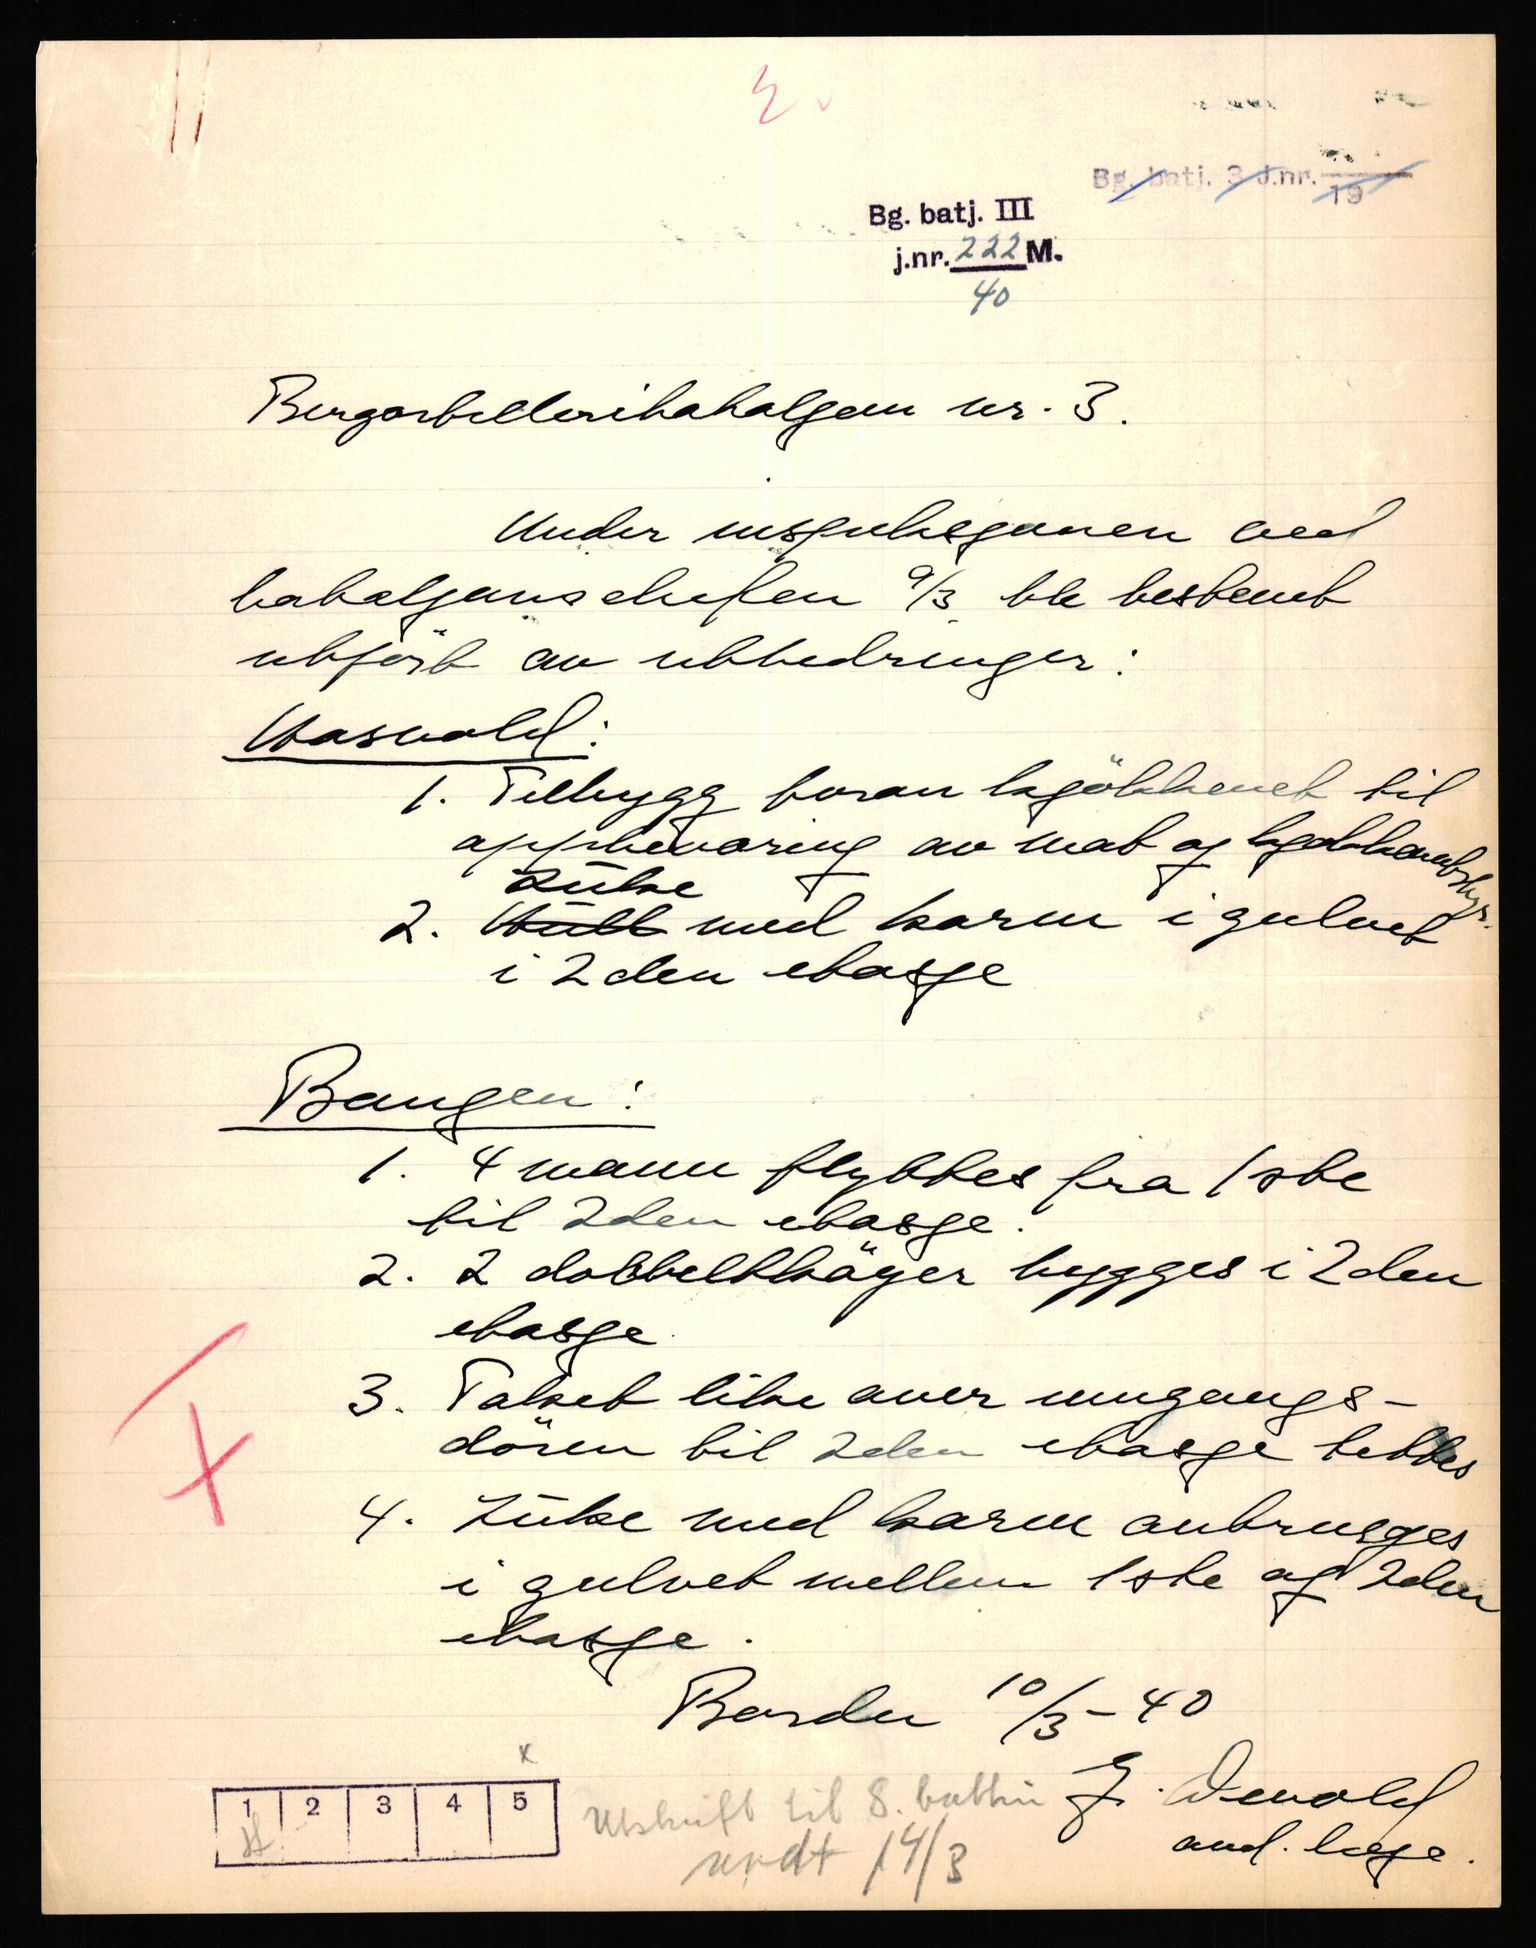 Bg. batj. 3 J.nr.
19
Bg. batj. III
j.nr. 222 M.
40
Bergartilleribataljon nr. 3.
Under inspeksjonen ved
bataljonssjefen 9/3 ble bestemt
utført av utbedringer:
1. Tilbygg foran kjökkenet til
oppbevaring av mat og kjökkenutstyr.
Luke
2. med karm i gulvet
i 2den etasje
Bangen:
1. 4 mann flyttes fra 1ste
til 2den etasje.
2. 2 dobbeltköyer bygges i 2den
etasje
3. Taket like over inngangs-
dören til 2den etasje tettes
4. Luke med karm anbringes
i gulvet mellem 1ste og 2den
etasje.
Bardu 10/3-40
1 2 3 4 5
x
Utskrift til 8. battri
sendt 14/3
E. Devold
and. lege.